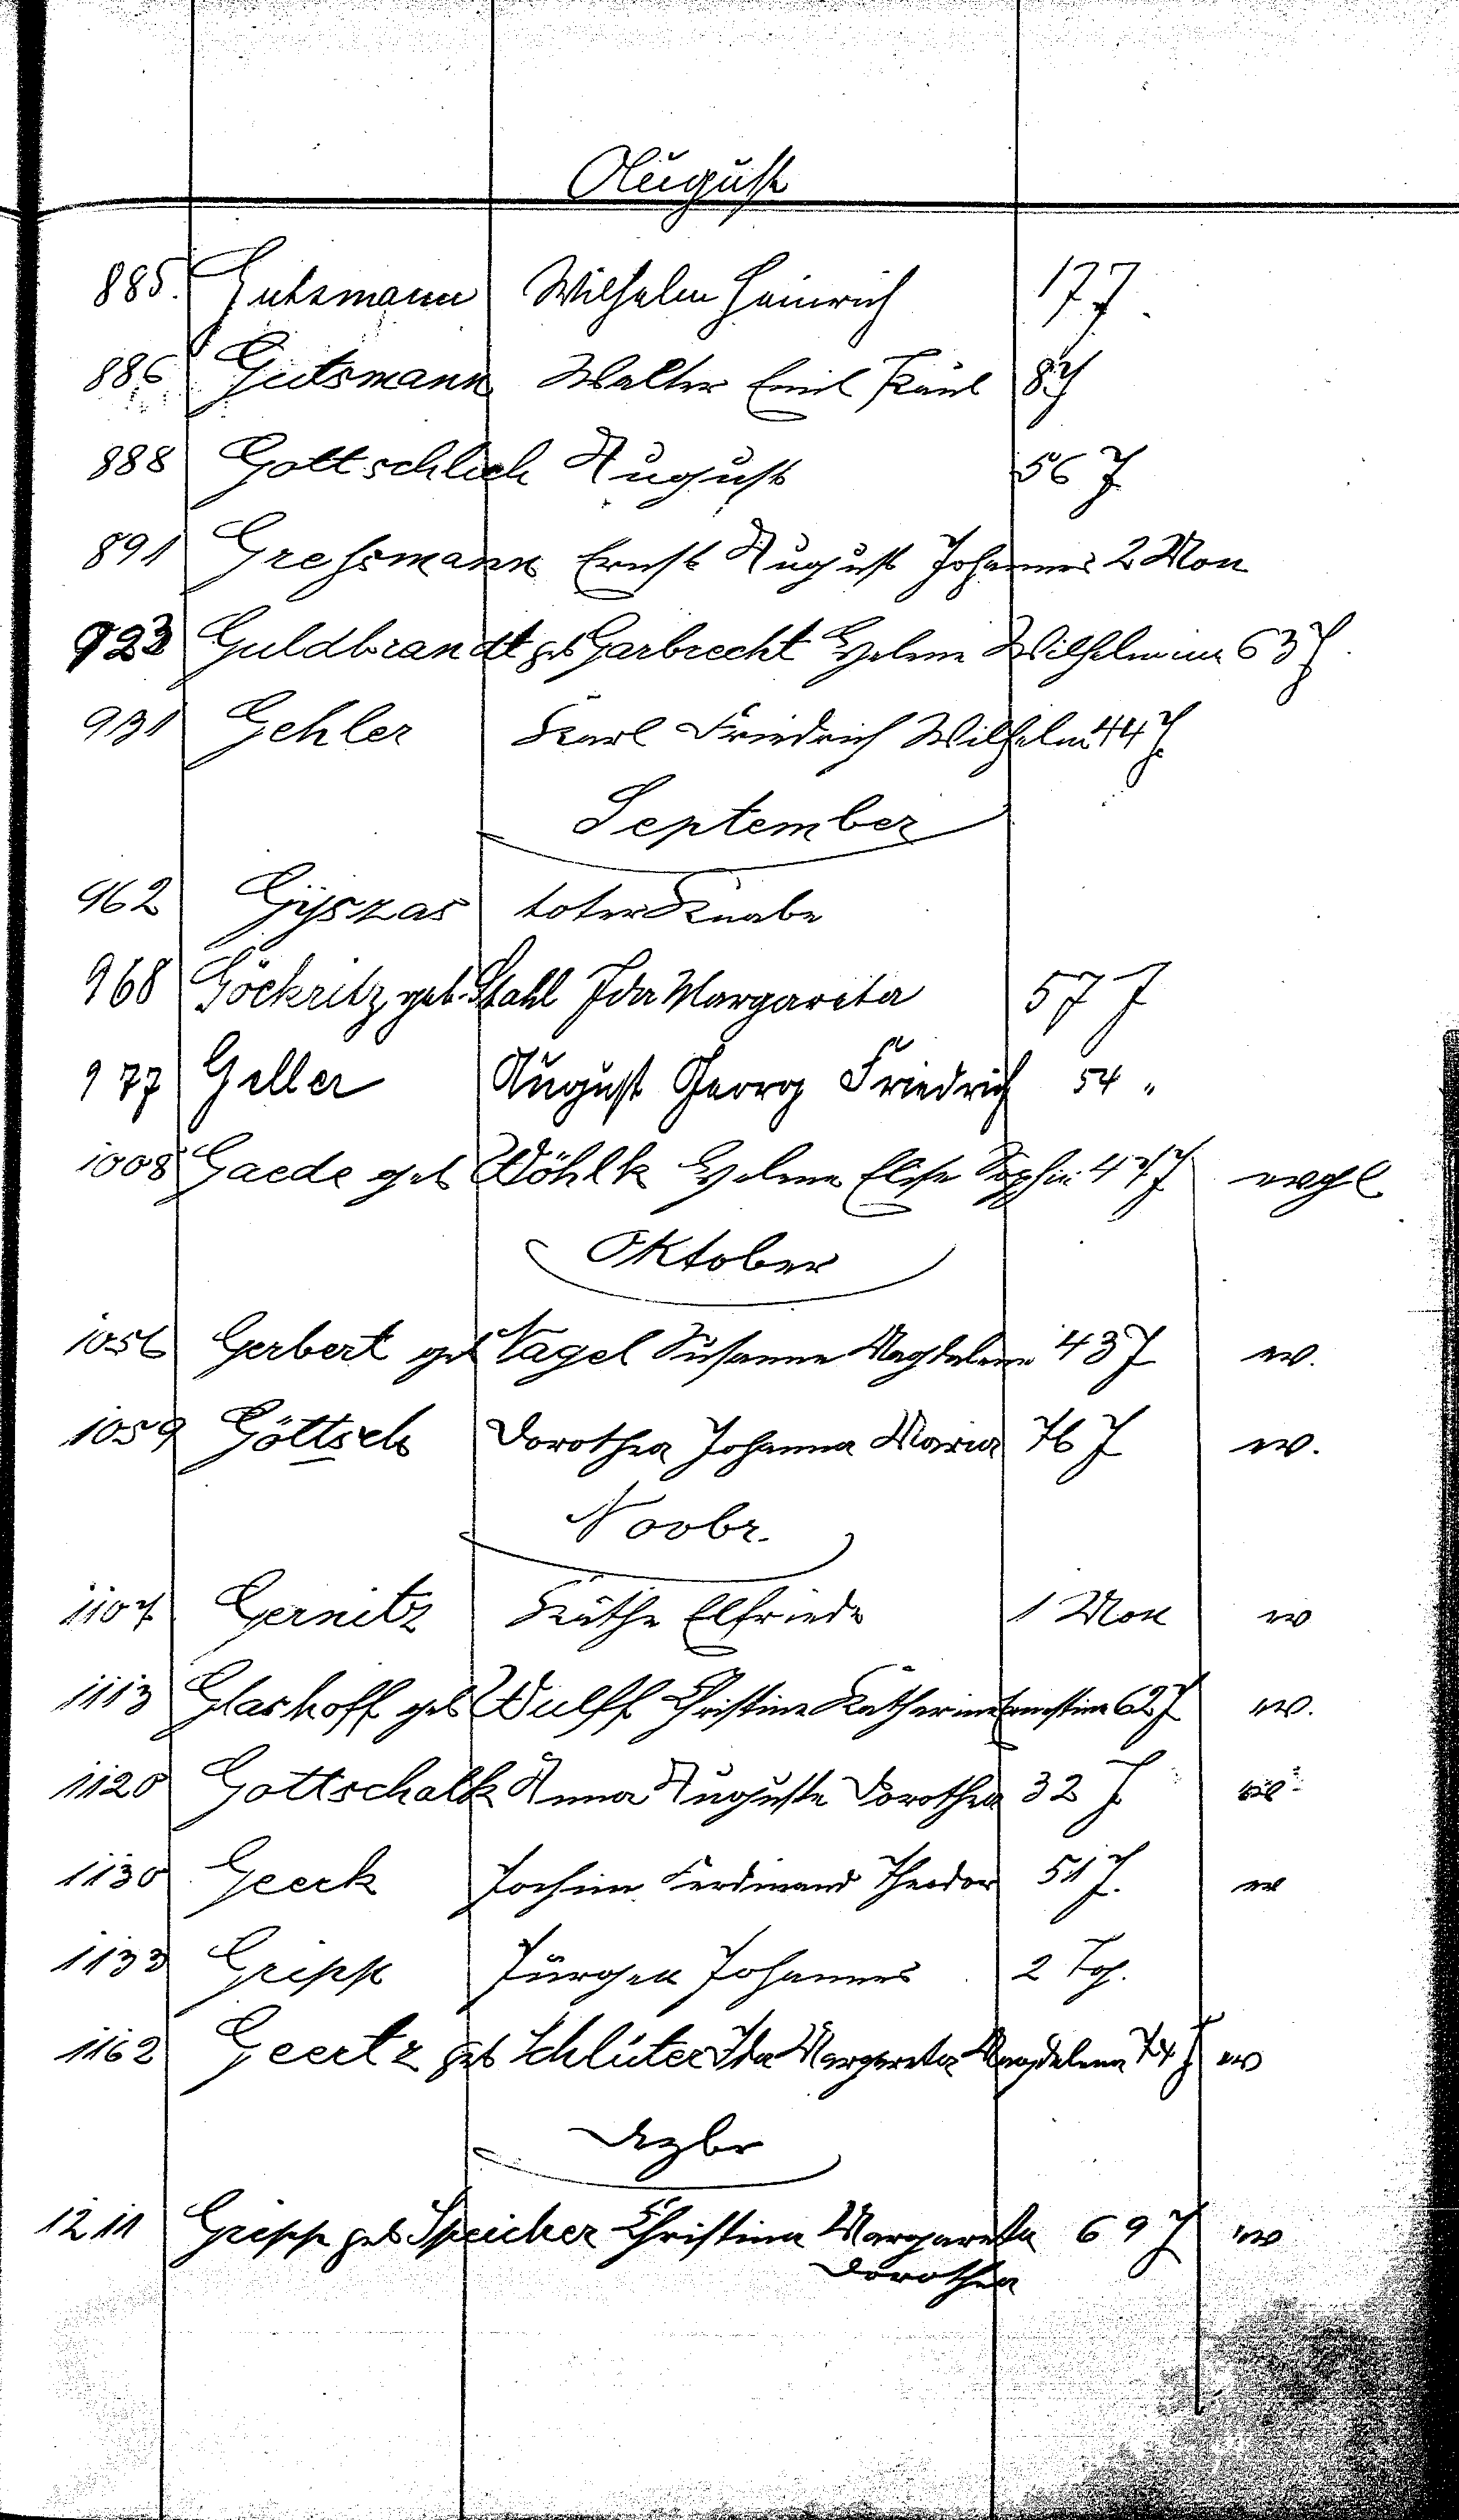 August
885. Gutsmann Wilhelm Heinrich 17 J.
886 Gutsmann Walter Emil Paul 8 J
888 Gottschlich August 56 J
891 Gressmann Ernst August Johannes 2 Mon
923 Guldbrandt geb Garbrecht Helene Wilhelmine 63 J.
931 Gehler Karl Friedrich Wilhelm 44 J.
September
962 Gyszas toter Knabe
968 Göckritz geb. Stahl Ida Margareta 57 J
977 Geller August Georg Friedrich 54 "
1008 Gaede geb Wöhlk Helene Elise Sophie 47 J
Oktober
1056 Gerbert geb Nagel Susanne Magdalene 43 J w.
1059 Göttsch Dorothea Johanna Maria 76 J w.
Novbr.
1107 Gernitz Käthe Elfriede 1 Mon w
1113 Glashoff geb Wulff Christine Katharine Ernestine 62 J w.
1120 Gottschalk Anna Auguste Dorothea 32 J.
1130 Geeck Jochim Ferdinand Theodor 51 J.
1133 Gripp Jürgen Johannes 2 Tg.
1162 Geertz geb Schlüter Ida Margareta Magdalena 74 J w
Dezbr
1211 Gripp geb Speicher Christina Margareta 69 J w
Dorothea